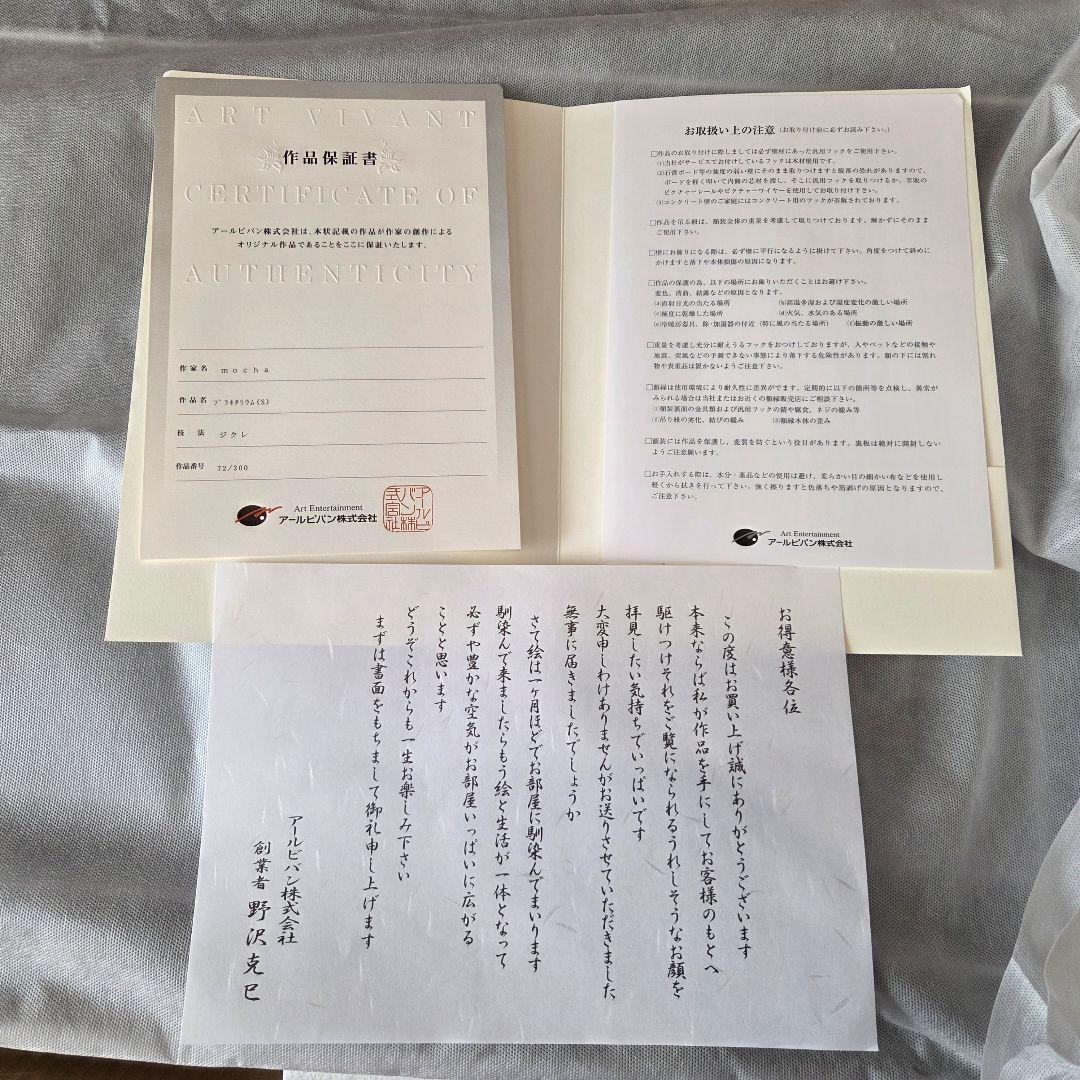 ART VIVANT
作品保証書
CERTIFICATE OF
アールビバン株式会社は、本状記載の作品が作家の創作による
オリジナル作品であることをここに保証いたします。
AUTHENTICITY
作家名 mocha
作品名 プラネタリウム(S)
技法 ジクレ
作品番号 72/300
Art Entertainment
アールビバン株式会社
アールビバン株式会社
お取扱い上の注意 (お取り付け前に必ずお読み下さい。)
□作品のお取り付けに際しましては必ず壁材にあった汎用フックをご使用下さい。
(1)当社がサービスでお付けしているフックは木材壁用です。
(2)石膏ボード等の強度の弱い壁にそのまま取りつけますと脱落の恐れがありますので、
ボードを軽く叩いて内側の芯材を探し、そこに汎用フックを取りつけるか、市販の
ピクチャーレールやピクチャーワイヤーを使用してお取り付け下さい。
(3)コンクリート壁のご家庭にはコンクリート用のフックが市販されております。
□作品を吊る紐は、額装全体の重量を考慮して取りつけております。解かずにそのまま
ご使用下さい。
□壁にお飾りになる際は、必ず壁に平行になるように掛けて下さい。角度をつけて斜めに
かけますと落下や本体損傷の原因になります。
□作品の保護の為、以下の場所にお飾りいただくことはお避け下さい。
変色、湾曲、結露などの原因となります。
(a)直射日光の当たる場所 (b)高温多湿および湿度変化の激しい場所
(c)極度に乾燥した場所 (d)火気、水気のある場所
(e)冷暖房器具、除・加湿器の付近（特に風の当たる場所） (f)振動の激しい場所
□重量を考慮し充分に耐えうるフックをおつけしておりますが、人やペットなどの接触や
地震、突風などの予測できない事態により落下する危険性があります。額の下には割れ
物や貴重品は置かないようご注意下さい。
□額縁は使用環境により耐久性に差異がでます。定期的に以下の箇所等を点検し、異常が
みられる場合は当社またはお近くの額縁販売店にご相談下さい。
(1)額装裏面の金具類および汎用フックの錆や腐食、ネジの緩み等
(2)吊り紐の劣化、結びの緩み (3)額縁本体の歪み
□額装には作品を保護し、変質を防ぐという役目があります。裏板は絶対に開封しない
ようご注意願います。
□お手入れする際は、水分・薬品などの使用は避け、柔らかい目の細かい布などを使用し
軽くから拭きを行って下さい。強く擦りますと色落ちや箔剥げの原因となりますので、
ご注意下さい。
Art Entertainment
アールビバン株式会社
お得意様各位
この度はお買い上げ誠にありがとうございます
本来ならば私が作品を手にしてお客様のもとへ
駆けつけそれをご覧になられるうれしそうなお顔を
拝見したい気持ちでいっぱいです
大変申しわけありませんがお送りさせていただきました
無事に届きましたでしょうか
さて絵は一ヶ月ほどでお部屋に馴染んでまいります
馴染んで来ましたらもう絵と生活が一体となって
必ずや豊かな空気がお部屋いっぱいに広がる
ことと思います
どうぞこれからも一生お楽しみ下さい
まずは書面をもちまして御礼申し上げます
アールビバン株式会社
創業者 野沢克巳